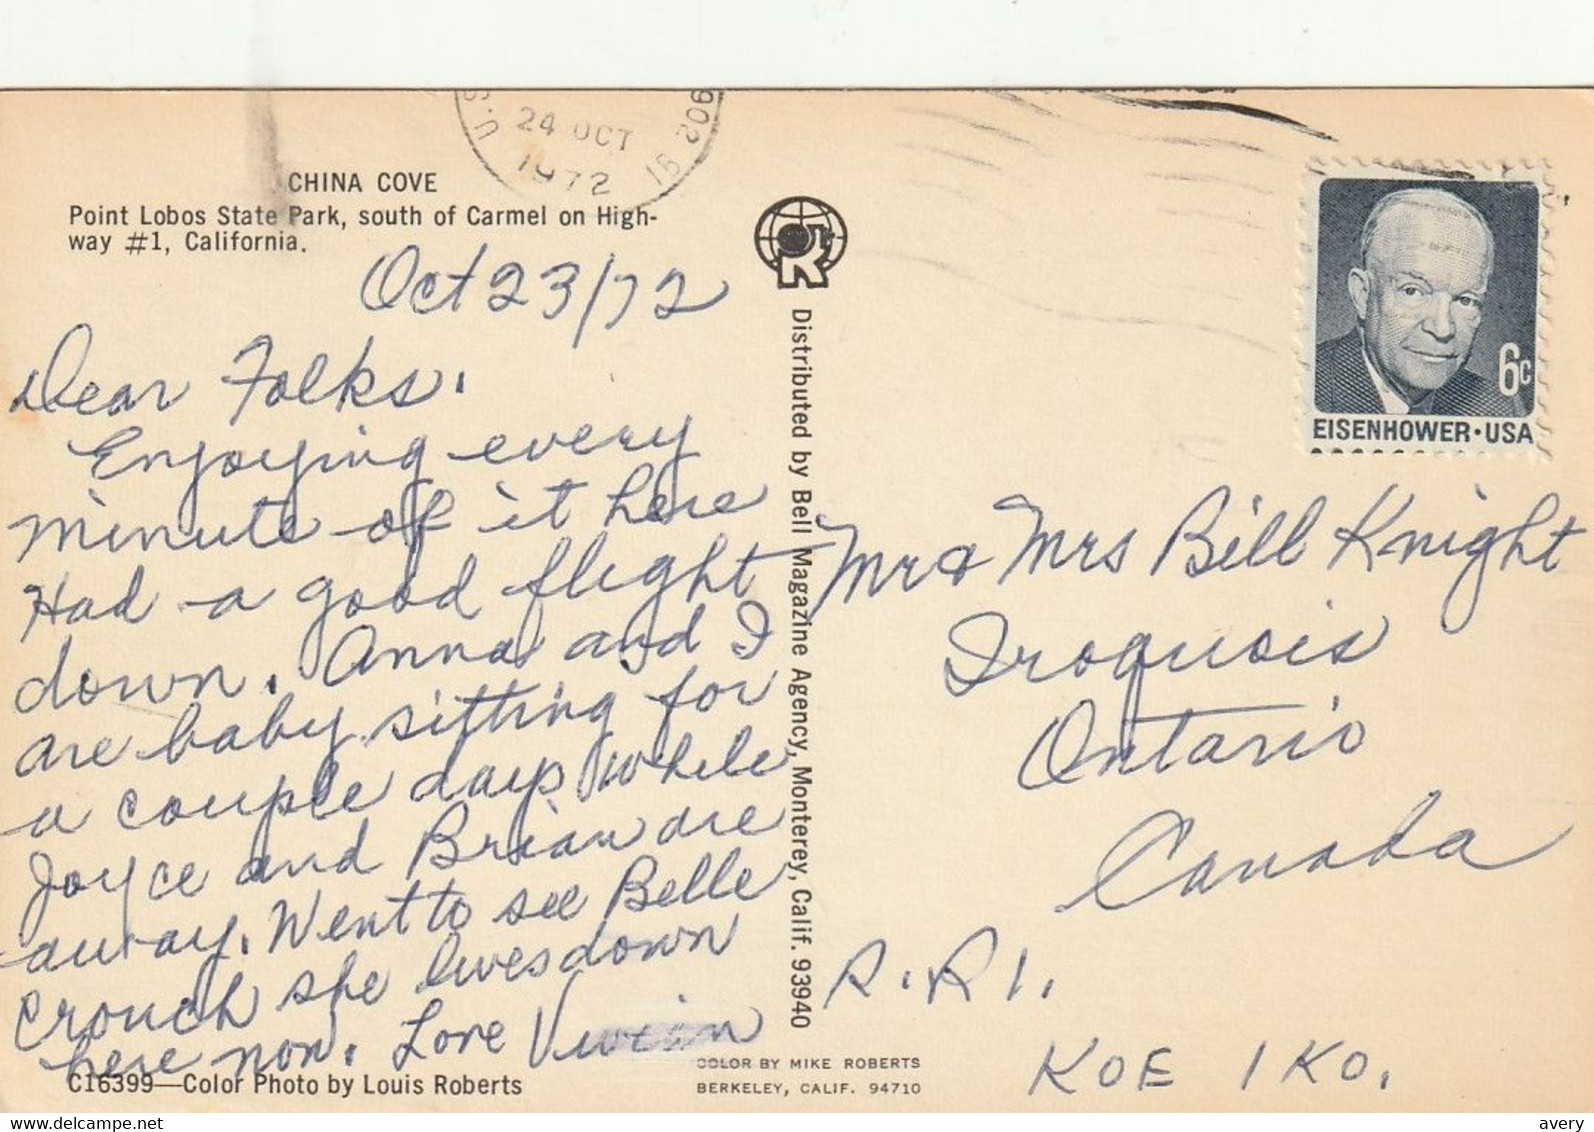 U.S.
24 OCT
1972
CHINA COVE
Point Lobos State Park, south of Carmel on High-
way #1, California.
Oct 23/72
Dear Folks.
Enjoying every
minute of it here
Had a good flight
down. Anna and I
are baby sitting for
a couple days while
Joyce and Brian are
away. Went to see Belle
Crouch she lives down
here now. Love Vivian
C16399—Color Photo by Louis Roberts
Distributed by Bell Magazine Agency, Monterey, Calif. 93940
COLOR BY MIKE ROBERTS
BERKELEY, CALIF. 94710
6c
EISENHOWER·USA
Mr & Mrs Bill Knight
Iroquois
Ontario
Canada
R.R 1.
K0E 1K0.
www.delcampe.net
avery